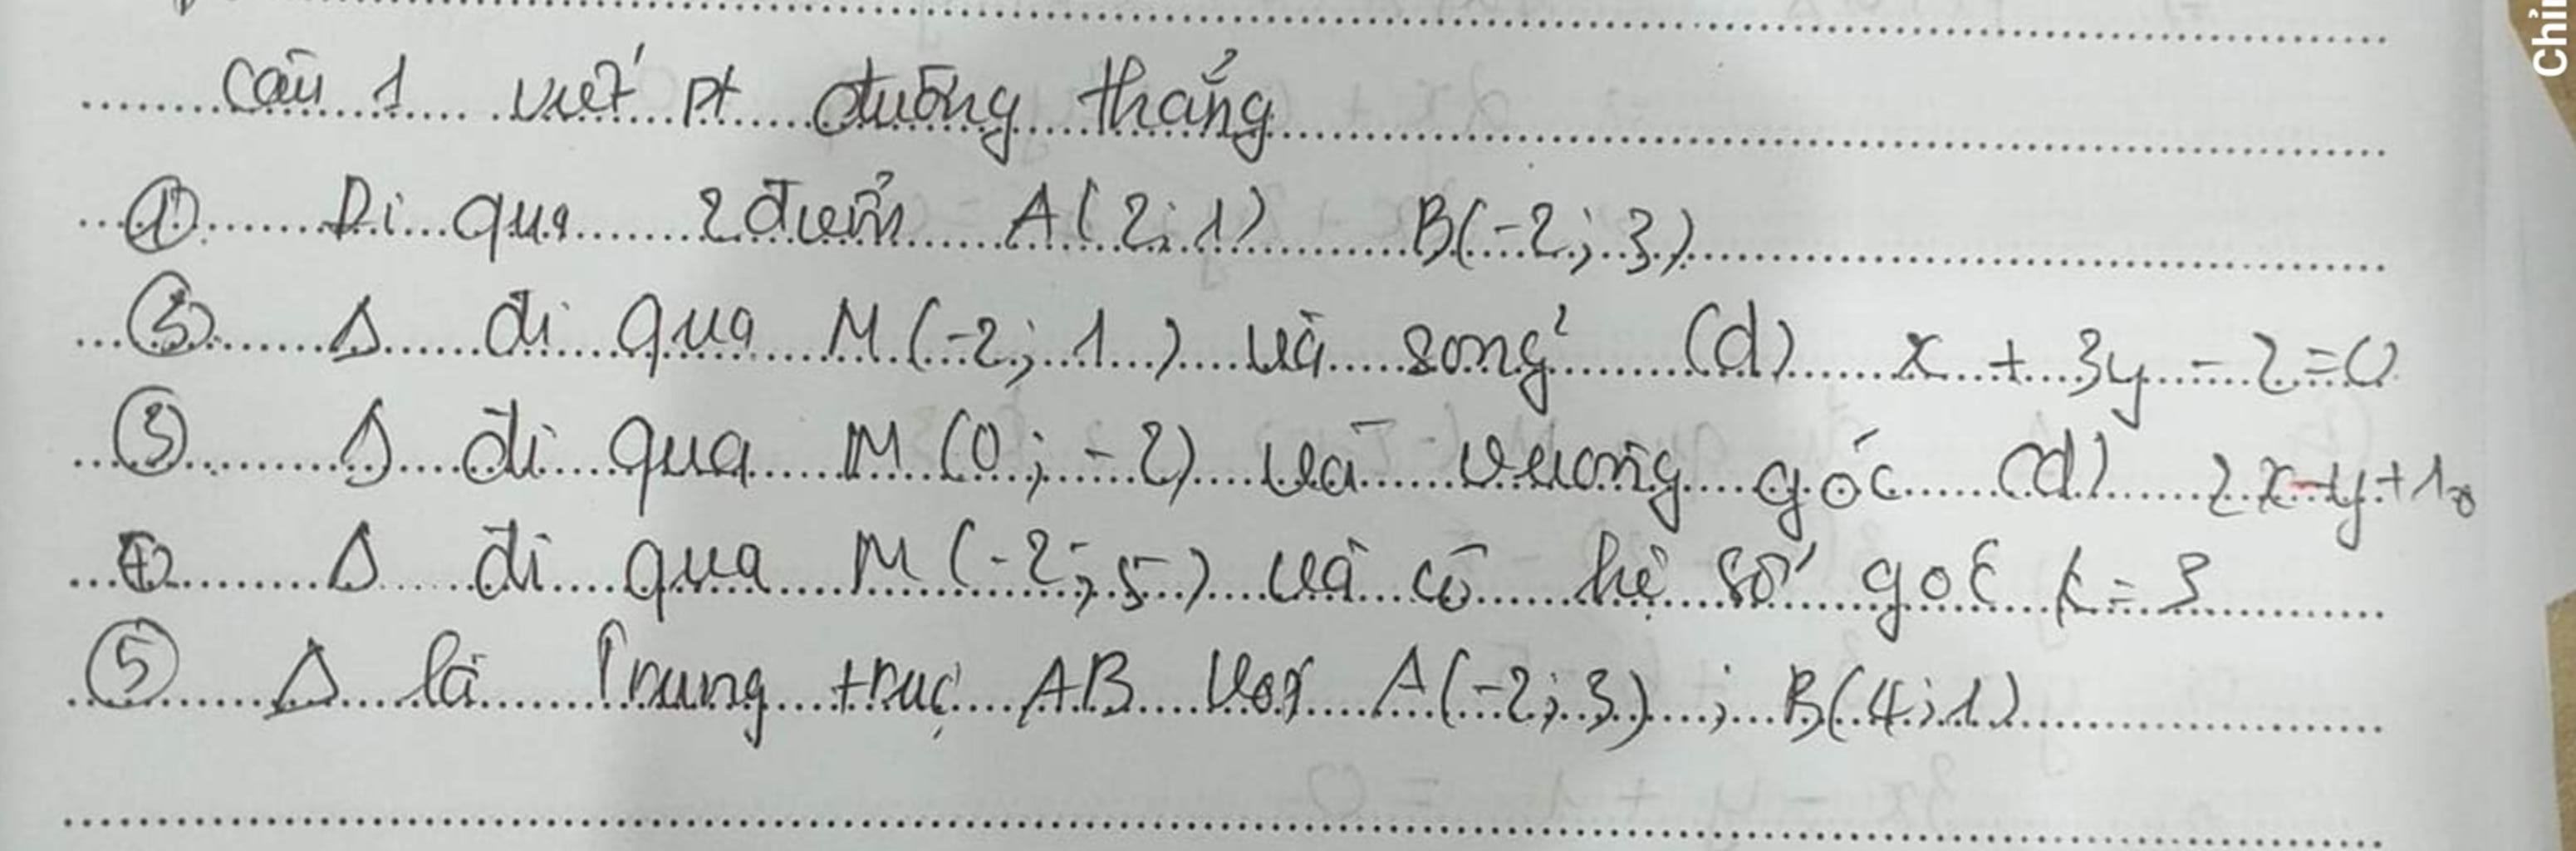 Câu 1 viết pt đường thẳng
① Đi qua 2 điểm A(2;1) B(-2;3)
② Δ đi qua M(-2;1) và song² (d) x + 3y - 2 = 0
③ Δ đi qua M(0;-2) và vuông góc (d) 2x-y+1=0
④ Δ đi qua M(-2;5) và có hệ số góc k = 3
⑤ Δ là Trung trực AB với A(-2;3) ; B(4;1)
Chỉn